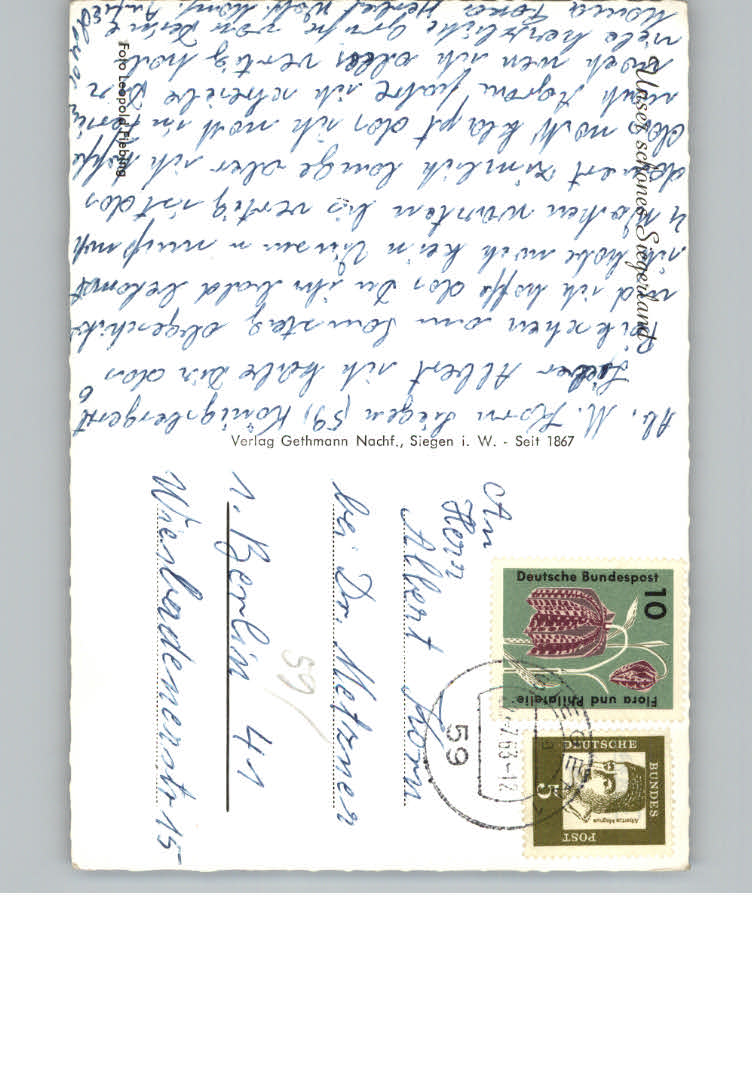 Ab. M. Horn Siegen (59) Königsbergerst 6
Lieber Albert ich habe Dir das
Päkchen am Samstag abgeschikt
und ich hoffe das Du ihn bald bekomst
ich habe noch kein muss noch
4 Wochen warten bis vertig ist das
dauert zimlich lange aber ich hoffe
das noch klapt das ich noch in
nach Agram fahre ich schreibe Dir
noch wen ich alles vertig hab
viele herzliche Grüße von Deine
Mama
Unser schönes Siegerland
Foto Leopold Fiebing
Verlag Gethmann Nachf., Siegen i. W. - Seit 1867
An
Herrn
Albert Horn
bei Dr. Metzner
1. Berlin 41
Wiesbadenerstr 15
59
Deutsche Bundespost
10
Flora und Philatelie
DEUTSCHE
BUNDES
POST
5
Albertus Magnus
SIEGEN
7.63-12
59